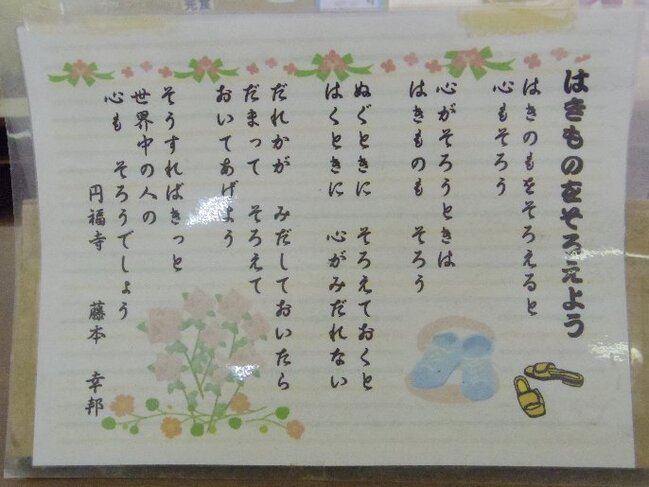 はきものをそろえよう
はきのもをそろえると
心もそろう
心がそろうときは
はきものも そろう
ぬぐときに そろえておくと
はくときに 心がみだれない
だれかが みだしておいたら
だまって そろえて
おいてあげよう
そうすればきっと
世界中の人の
心も そろうでしょう
円福寺 藤本 幸邦